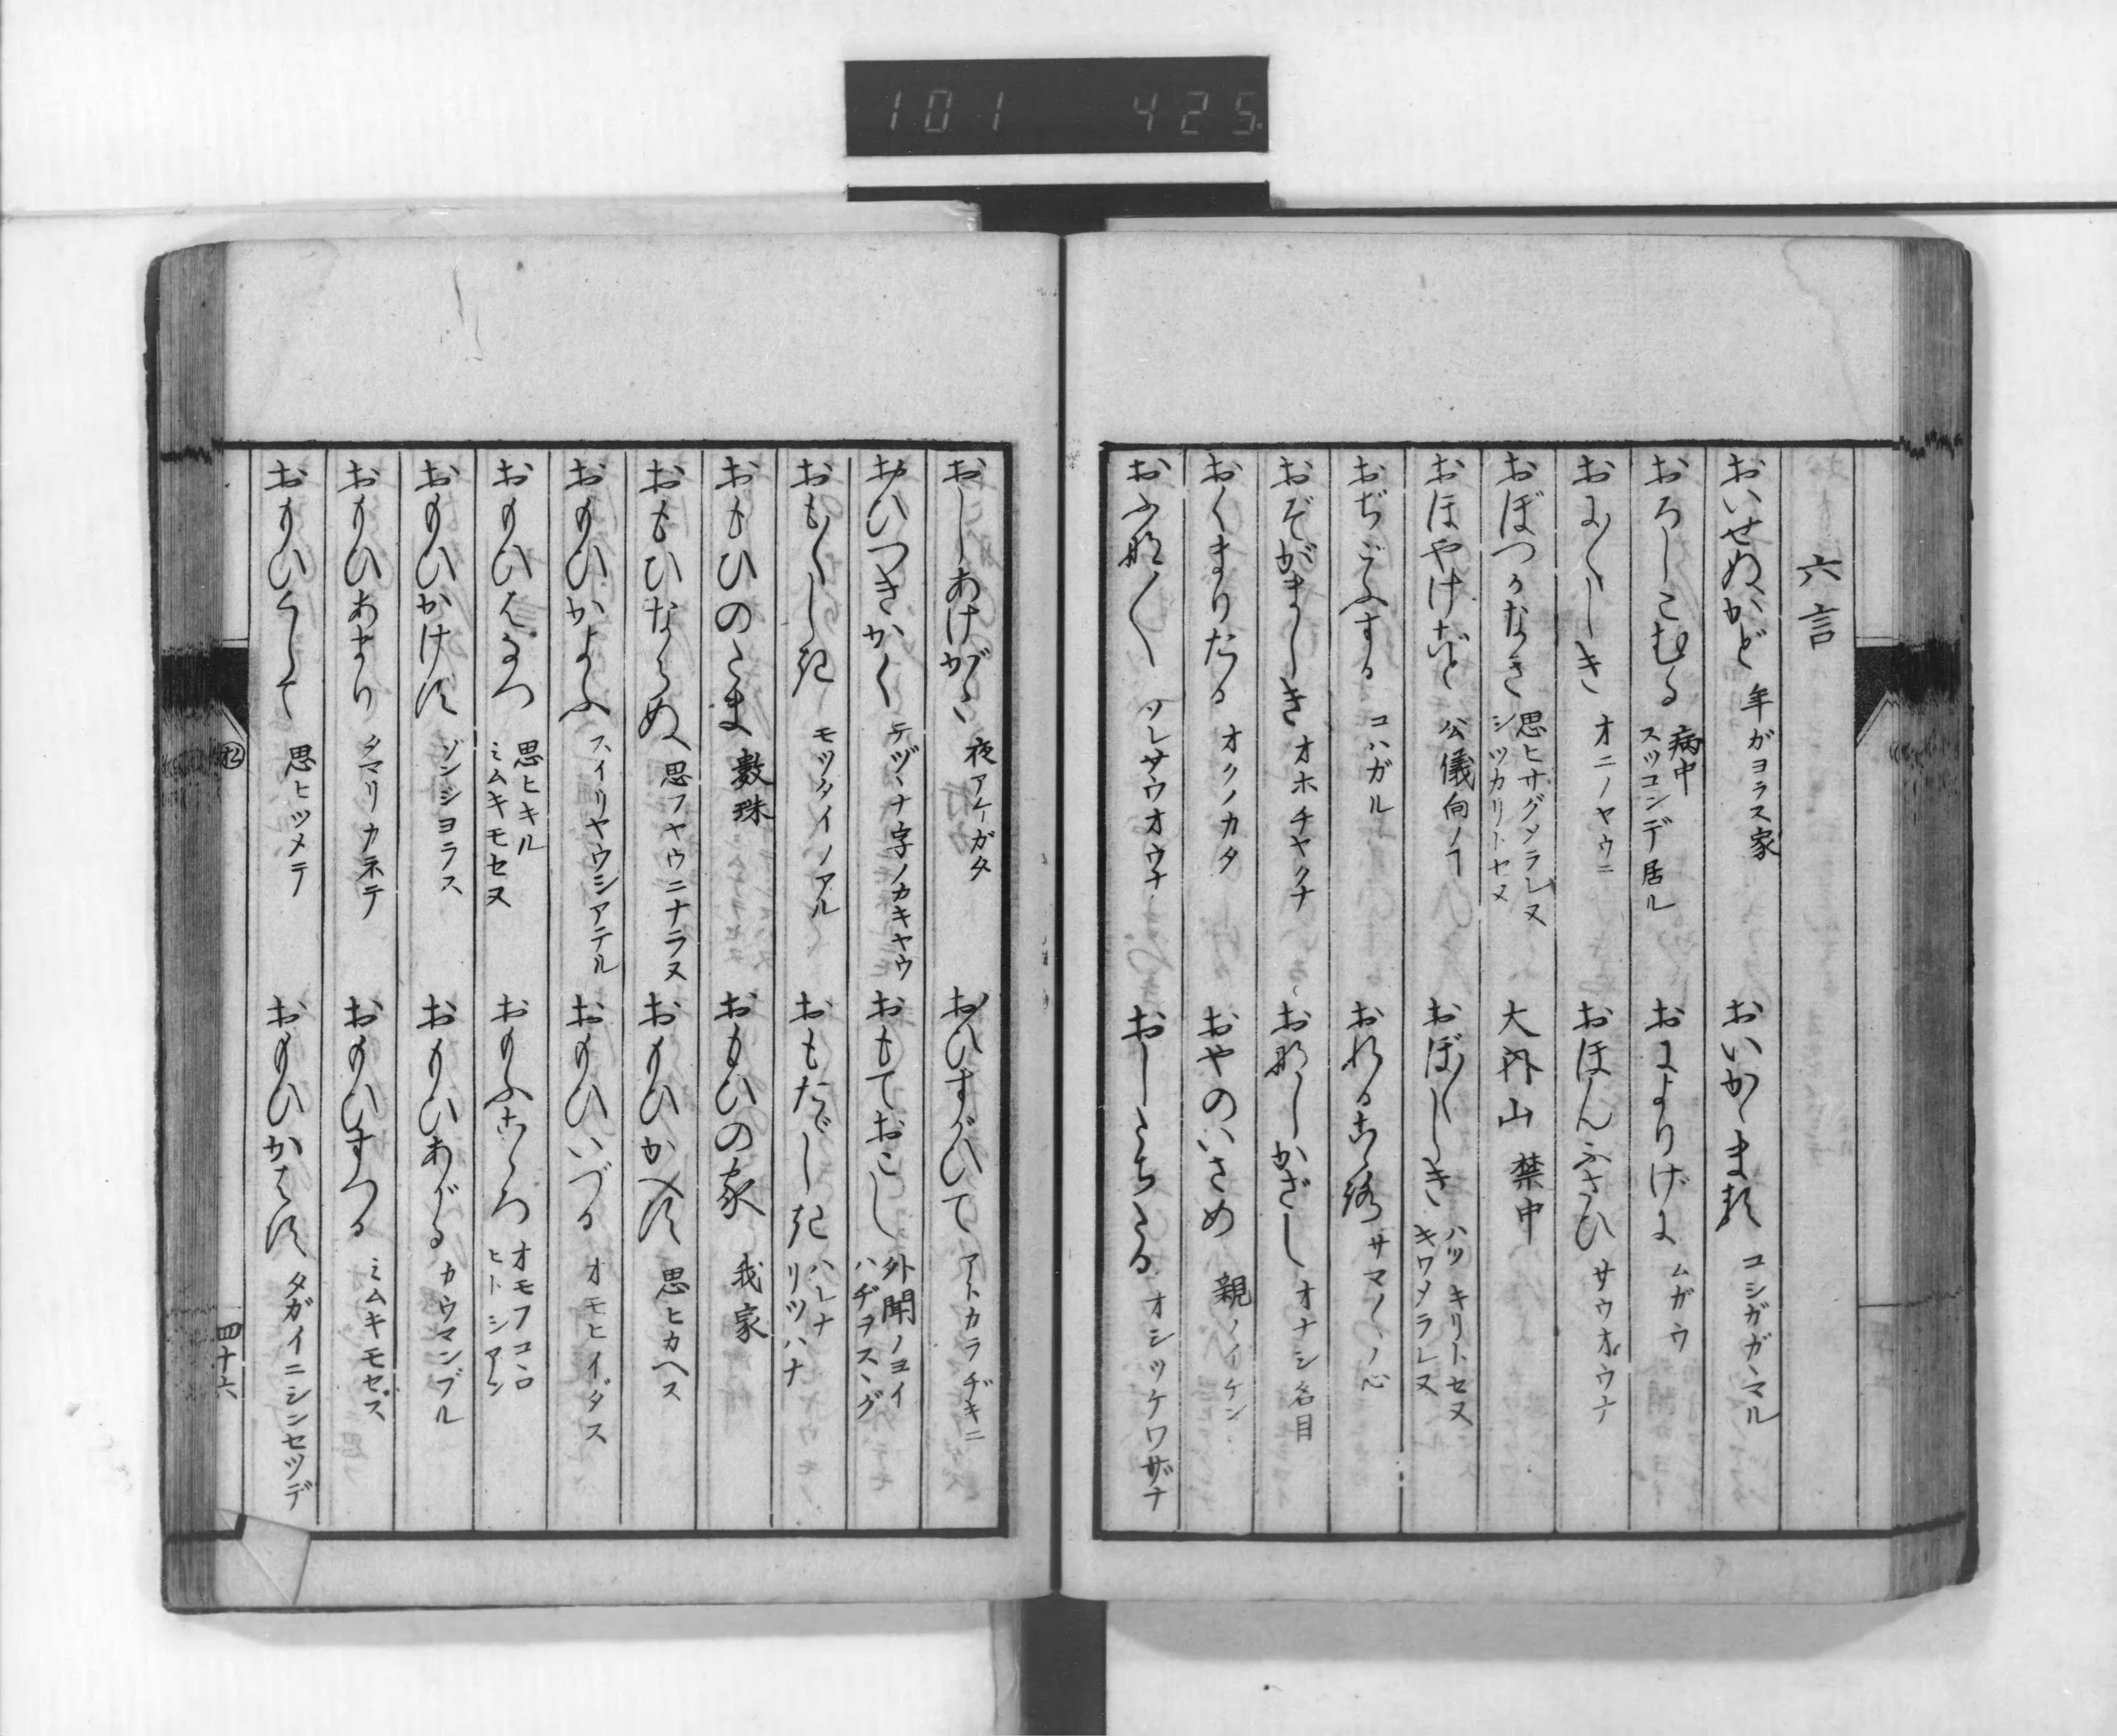 101 425
六言
おいせぬかど 年ガヨラス家
おいかゞまる コシガガヽマル
おろしこむる 病中 スツコンデ居ル
およりげに ムガウ
おに〳〵しき オニノヤウニ
おほんふさひ サウオウナ
おぼつかなき 思ヒサグメラレヌ シツカリトセヌ
大内山 禁中
おほやけごと 公儀向ノ
おぼ〳〵しき ハツキリトセヌ キワメラレヌ
おぢごふする コハガル
サマ〴〵ノ心
おぞがましき オホチヤクナ
おなしかざし オナシ名目
おくまりたる オクノカタ
おやのいさめ 親ノイケン
おふな〳〵 ソレサウオウナ
おしたちたる オシツケワザナ
おしあけがた 夜アケガタ
おひすがひて アトカラヂキニ
おひつきかく テヅヽナ字ノカキヤウ
おもておこし 外聞ノヨイ ハヂヲスヽグ
おも〳〵しき モツタイノアル
おもたゞしき ハレナ リツハナ
おもひのたま 数珠
おもひの家 我家
おもひならぬ 思フヤウニナラヌ
おもひかへす 思ヒカヘス
おもひかよふ スイリヤウシアテル
おもひいづる オモヒイダス
おもひはなつ 思ヒキル ミムキモセヌ
おもふこゝろ オモフコヽロ
おもひかけす ゾンジヨラス
おもひあがる カウマンブル
おもひあまり タマリカネテ
おもひすつる ミムキモセズ
おもひくして 思ヒツメテ
おもひかはす タガイニシンセツデ
四十六